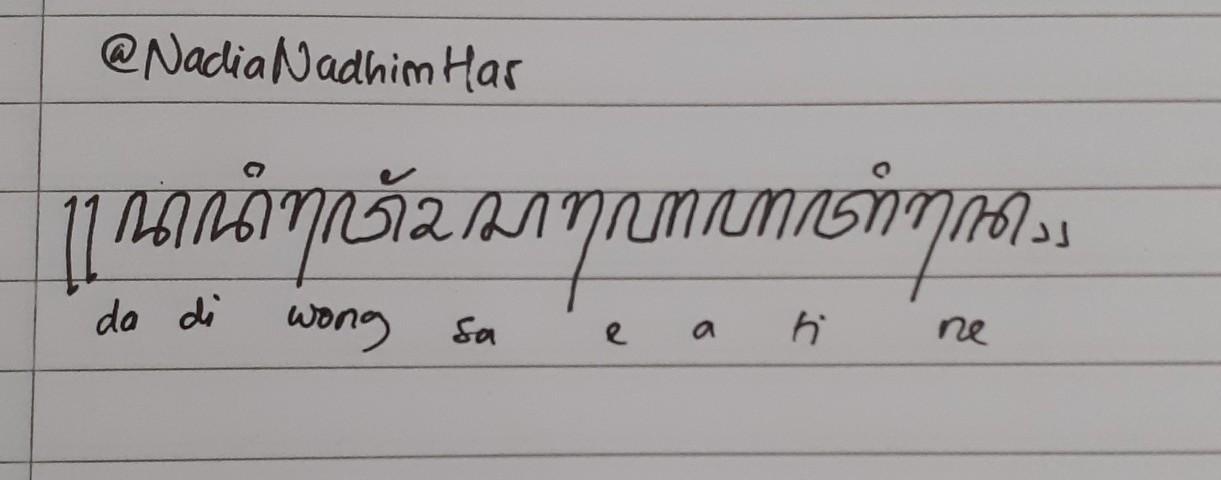 @NadiaNadhimHar
꧋ꦢꦢꦶꦮꦺꦴꦁꦱꦲꦺꦲꦠꦶꦤꦺ꧉
da di wong sa e a ti ne